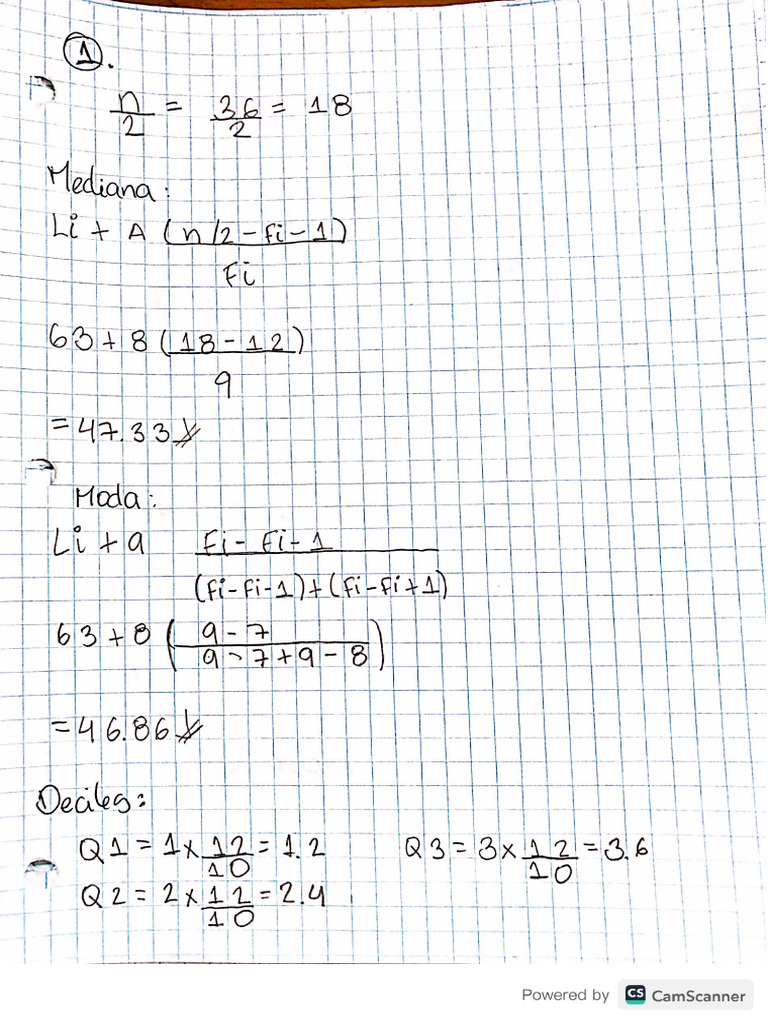 1.
n/2 = 36/2 = 18
Mediana:
Li + A (n/2 - fi - 1)
Fi
63 + 8 (18 - 12)
9
= 47.33
Moda:
Li + a Fi - Fi - 1
(fi - fi - 1) + (fi - fi + 1)
63 + 8 ( 9 - 7
9 - 7 + 9 - 8 )
= 46.86
Deciles:
Q1 = 1 x 12/10 = 1.2 Q3 = 3 x 12/10 = 3.6
Q2 = 2 x 12/10 = 2.4
Powered by CS CamScanner